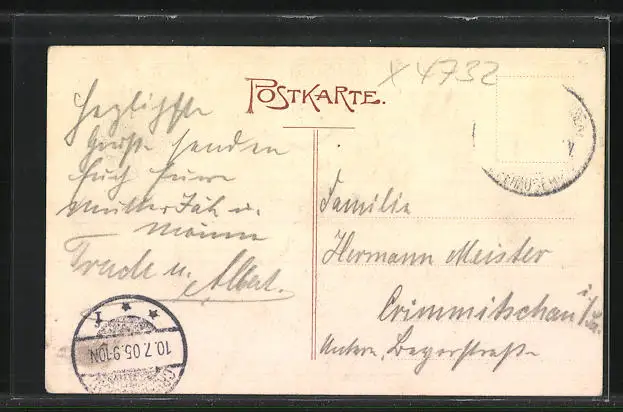 POSTKARTE.
X 4732
Herzlichste
Grüße senden
Euch Eure
Mutter
Trude u. Albert.
Familie
Hermann Meister
Crimmitschau i/Sa.
Untere
10.7.05.9-10N.